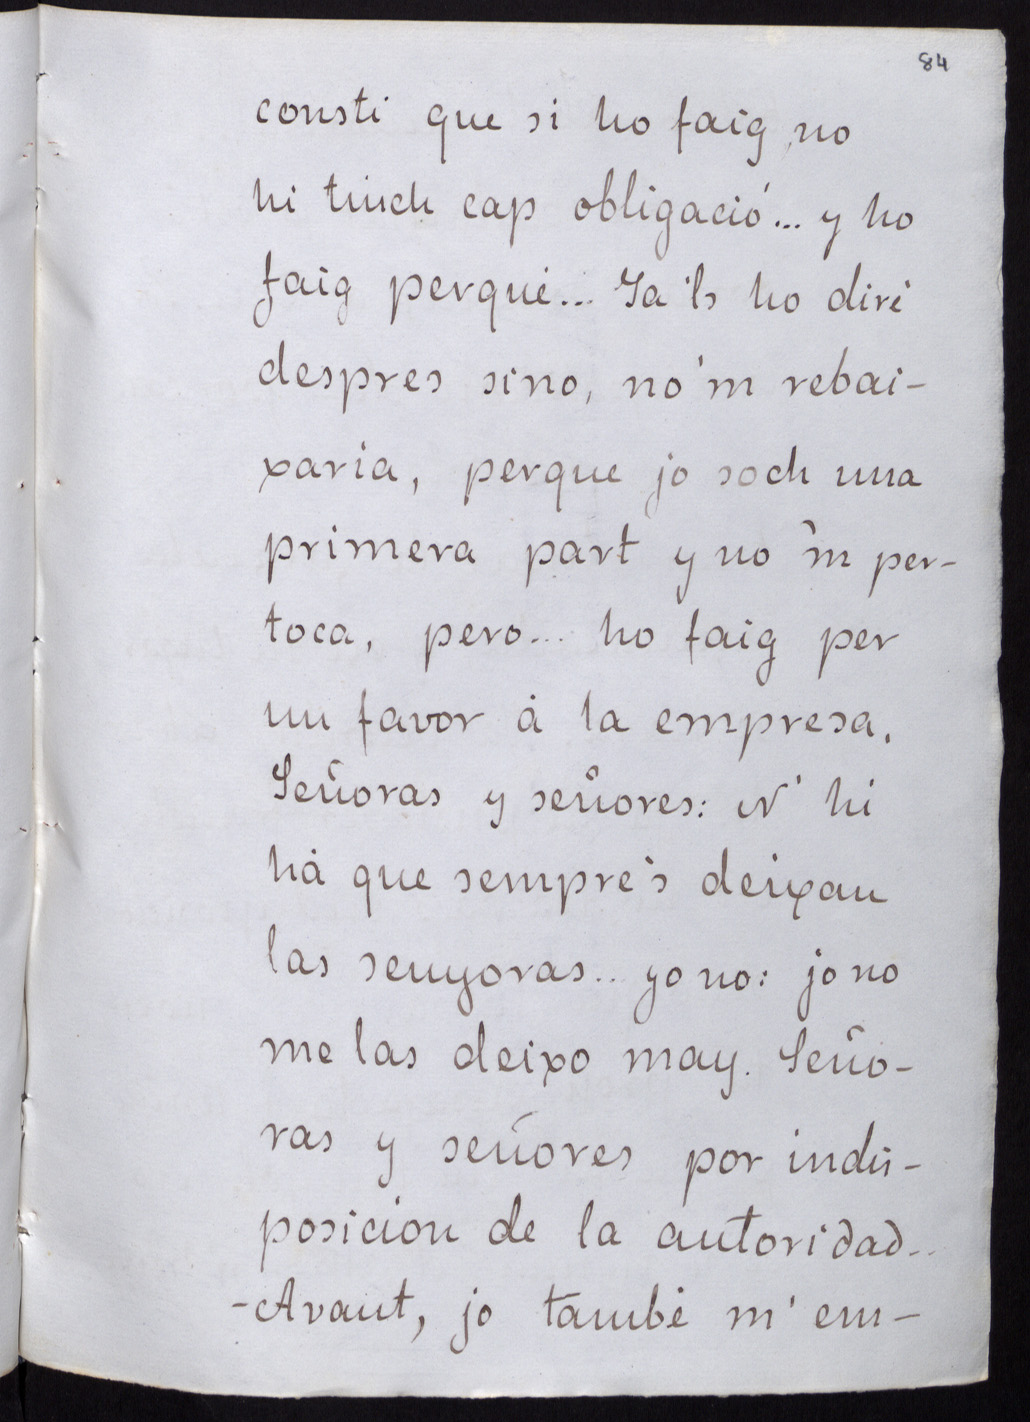 84
consti que si ho faig, no
hi tinch cap obligació... y ho
faig perqué... Ja 'ls ho diré
despres sino, no'm rebai-
xaria, perque jo soch una
primera part y no 'm per-
toca, pero... ho faig per
un favor á la empresa.
Señoras y señores: N' hi
há que sempre's deixan
las senyoras.. yo no: jo no
me las deixo may. Seño-
ras y señores por indis-
posicion de la autoridad..
-Avant, jo també m' em-